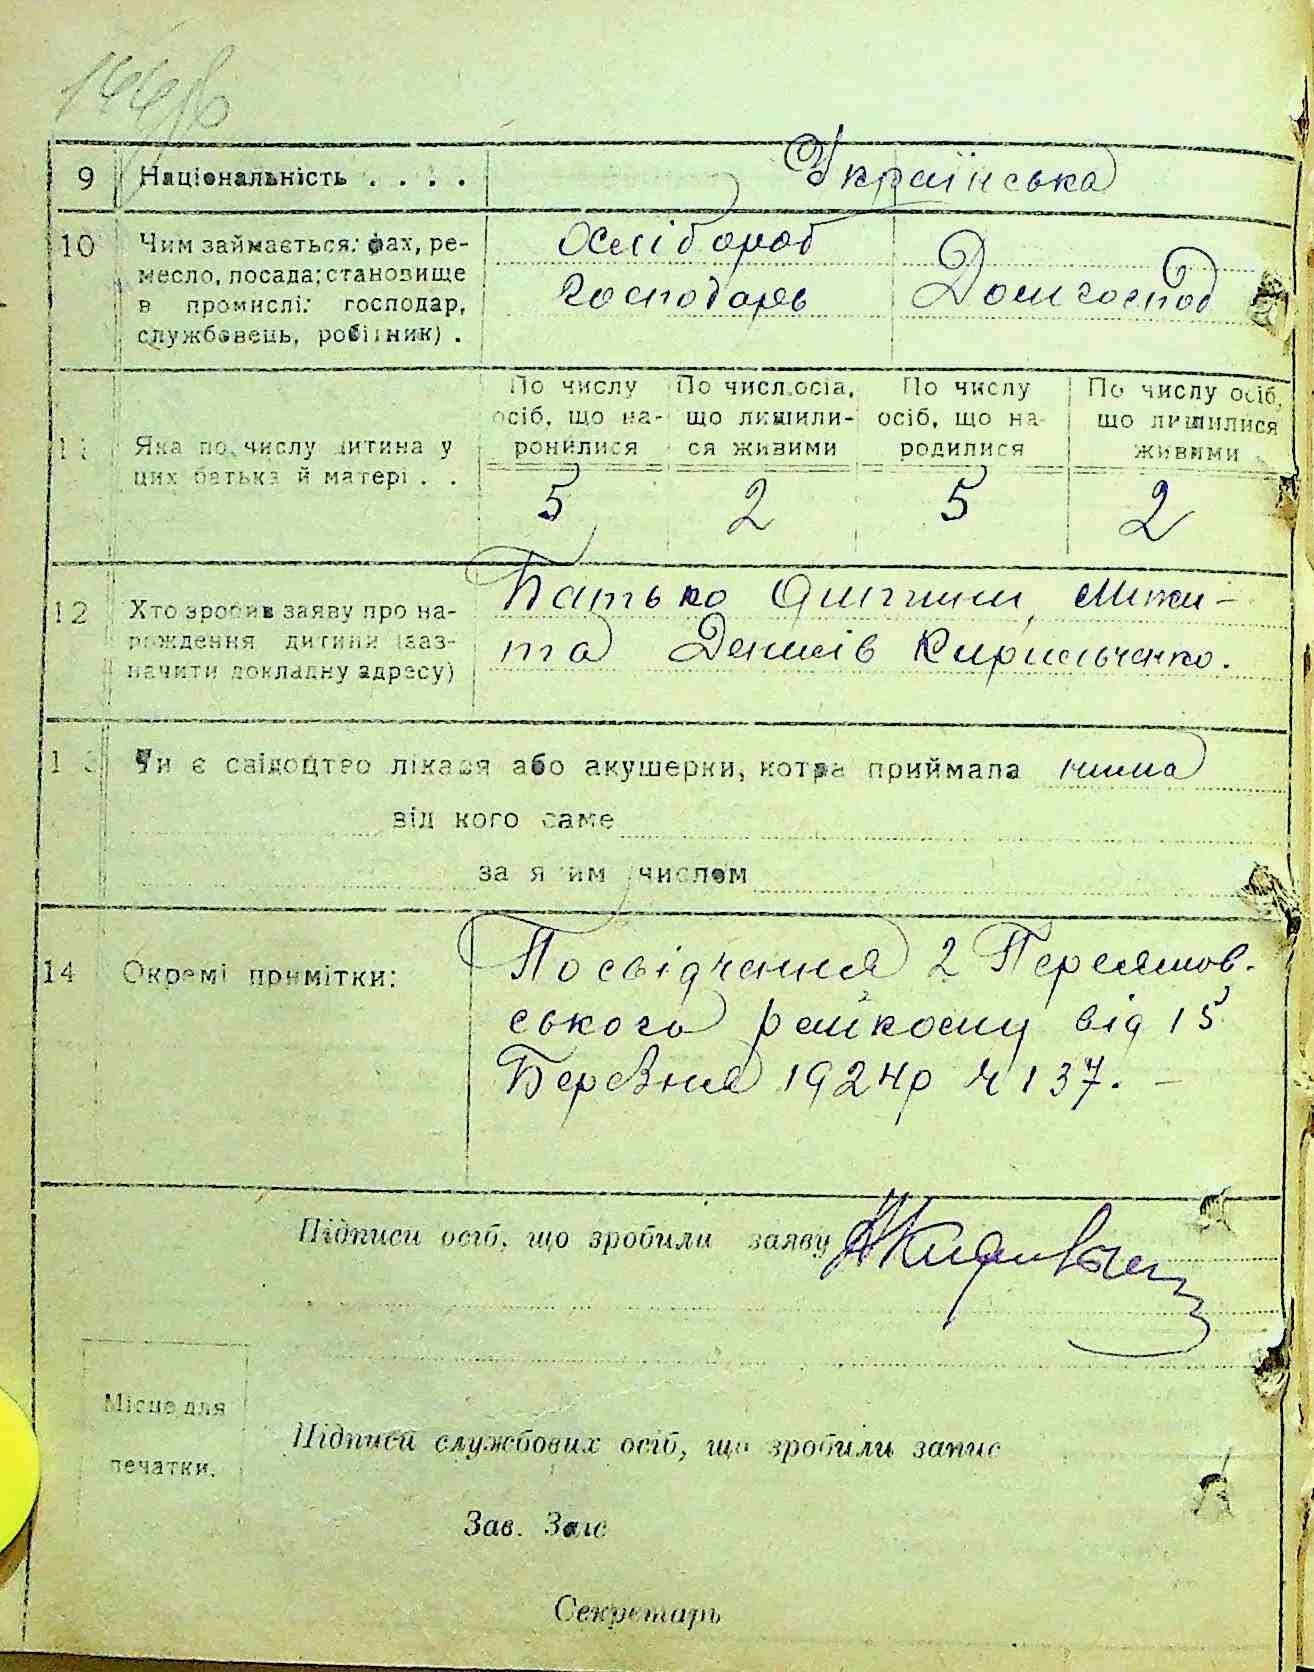 9 Національність . . . . Українська
10 Чим займається: фах, ре-
месло, посада; становище
в промислі: господар,
службовець, робітник) .
Хлібороб
господарь
Домгоспод
11 Яка по числу дитина у
цих батька й матері . .
По числу
осіб, що на-
ронилися
По числ.осіа,
що лишили-
ся живими
По числу
осіб, що на-
родилися
По числу осіб,
що лишилися
живими
5 2 5 2
12 Хто зробив заяву про на-
рождення дитини (заз-
начити докладну адресу)
Батько дитини, Мики-
та Денисів Кирильченко.
13 Чи є свідоцтво лікаря або акушерки, котра приймала нима
від кого саме
за яким числом
14 Окремі примітки:
Посвідчення 2 Переяслов-
ського райкому від 15
Березня 1924р Ч 137. –
Підписи осіб, що зробили заяву
Місце для
печатки.
Підписи службових осіб, що зробили запис
Зав. Загс
Секретарь